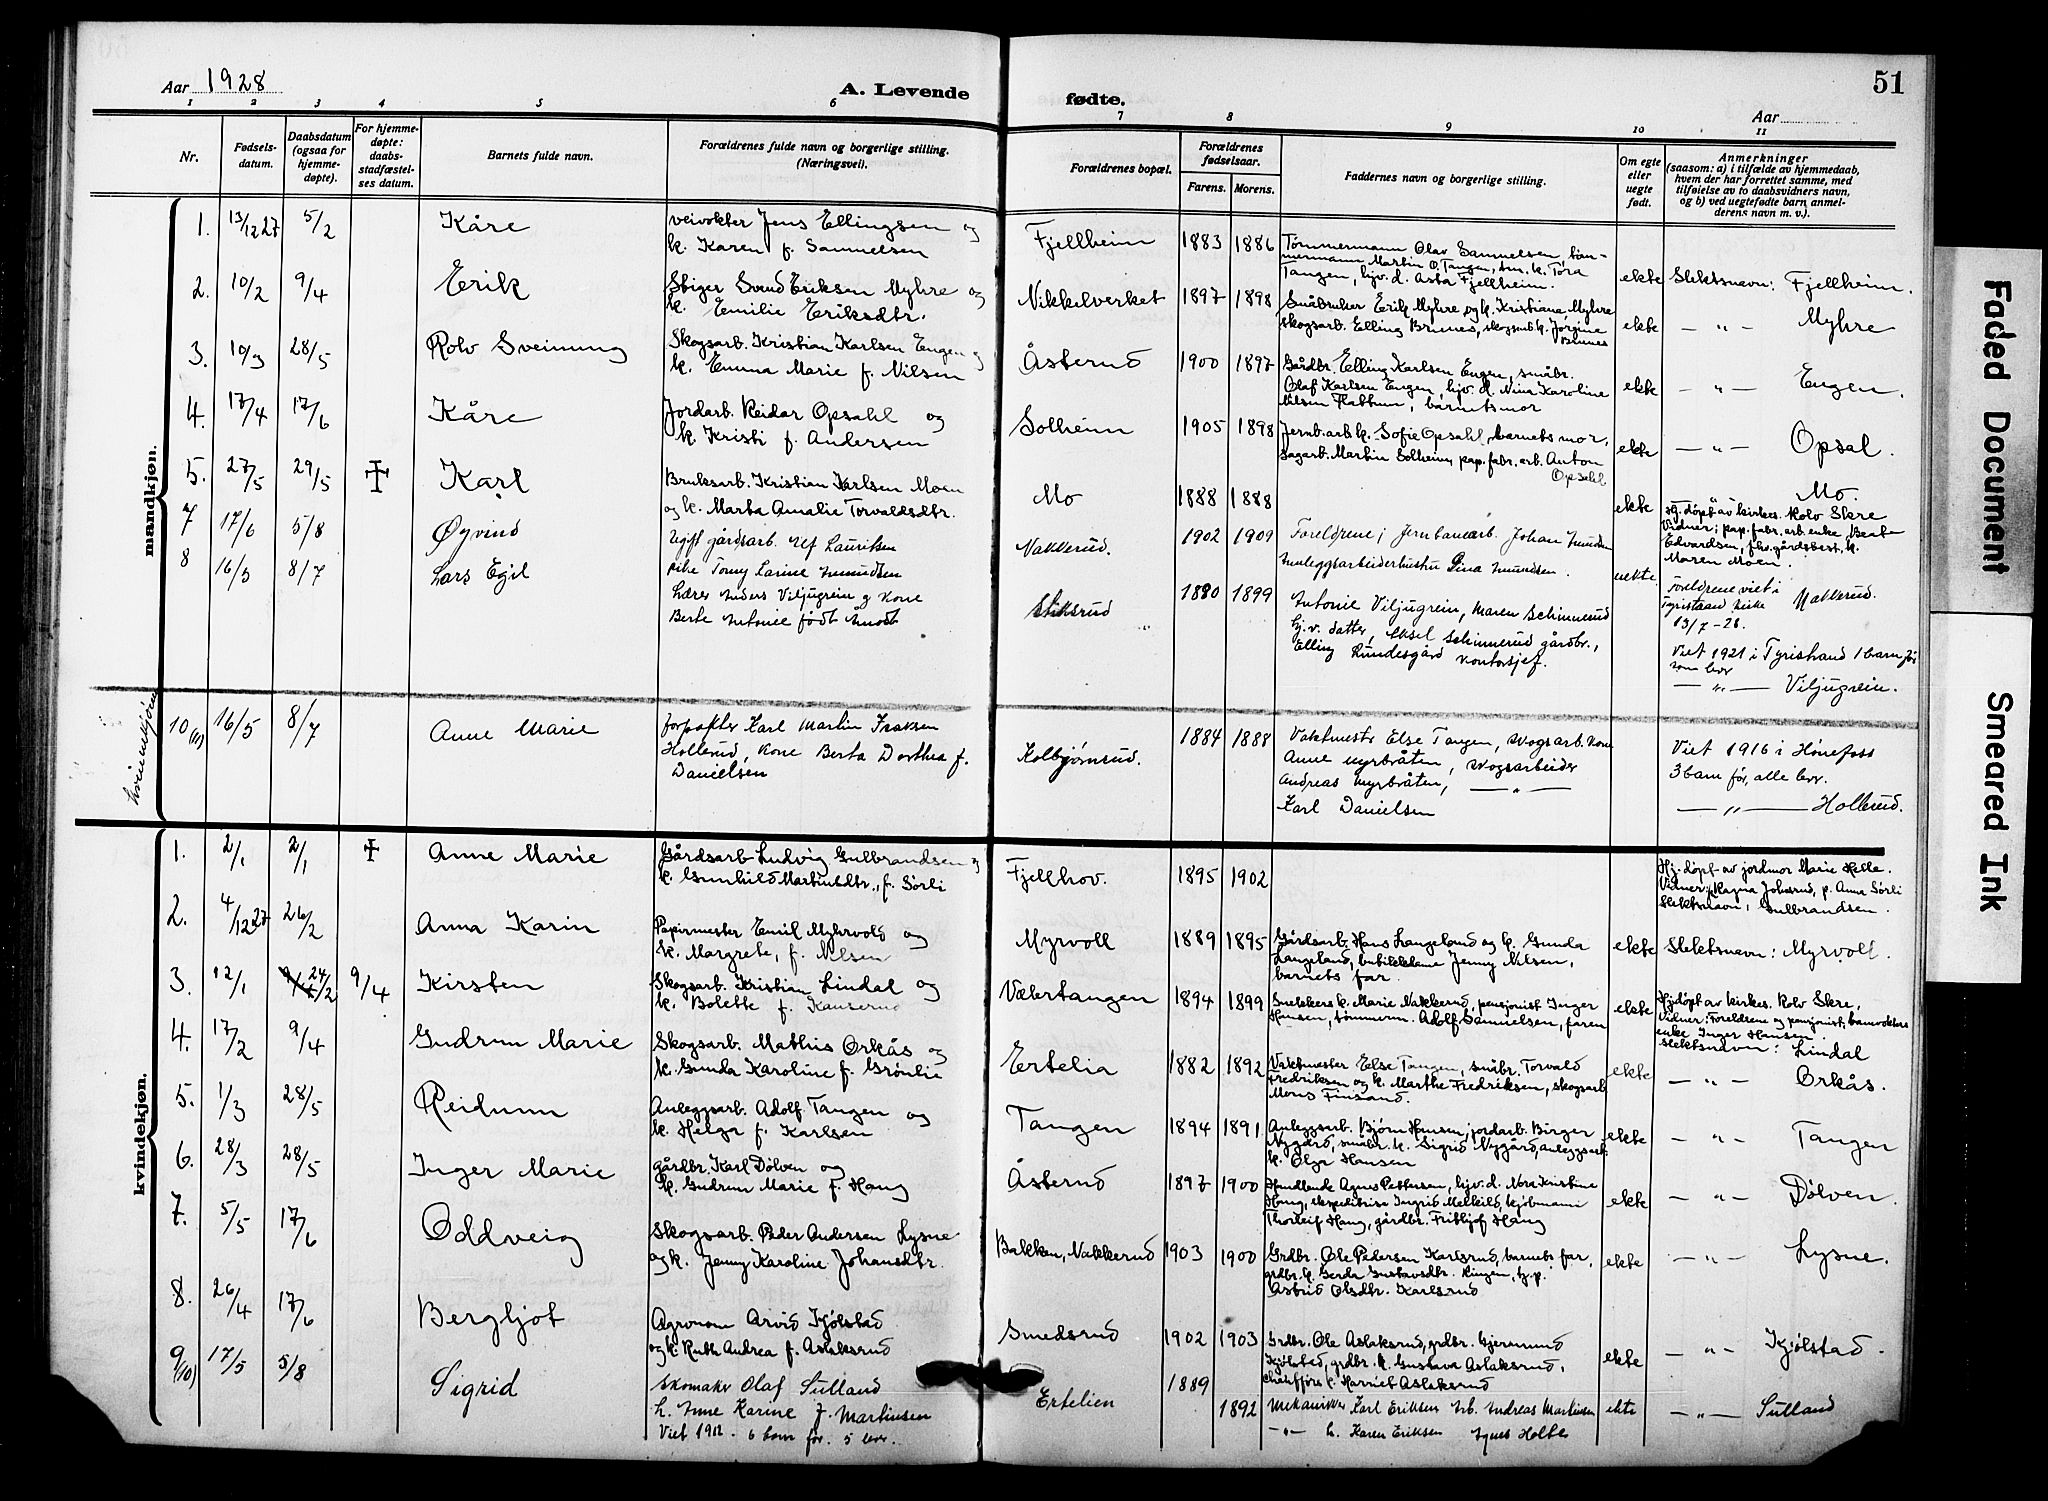 Aar 1928
A. Levende
fødte.
Aar
51
1 2 3 4 5 6 7 8 9 10 11
Nr.
Fødsels-
datum.
Daabsdatum
(ogsaa for
hjemme-
døpte).
For hjemme-
døpte:
daabs-
stadfæstel-
ses datum.
Barnets fulde navn.
Forældrenes fulde navn og borgerlige stilling.
(Næringsvei).
Forældrenes bopæl.
Forældrenes
fødselsaar.
Farens. Morens.
Faddernes navn og borgerlige stilling.
Om egte
eller
uegte
født.
Anmerkninger
(saasom: a) i tilfælde av hjemmedaab,
hvem der har forrettet samme, med
tilføielse av to daabsvidners navn,
og b) ved uegtefødte barn, anmel-
derens navn m. v.).
mandkjøn.
1. 13/12 27 5/2 Kåre
veivokter Jens Ellingsen og
k. Karen f. Samuelsen
Fjellheim 1883 1886
Tømmermann Olav Samuelsen, tøm-
mermann Martin O. Tangen, tm. k. Tora
Tangen, hjv. d. Asta Fjellheim.
ekte Slektsnavn: Fjellheim.
2. 10/2 9/4 Erik
Stiger Svend Eriksen Myhre og
k. Emilie Eriksdtr.
Nikkelverket 1897 1898
Småbruker Erik Myhre og k. Kristiana Myhre
skogsarb. Elling Brunes, skogsarb. k. Jørgine
Brunes
ekte — " — Myhre
3. 10/3 28/5 Rolv Sveinung
Skogsarb. Kristian Karlsen Engen og
k. Emma Marie f. Nilsen
Åsterud 1900 1897
Gårdbr. Elling Karlsen Engen, småbr.
Olaf Karlsen Engen, hjv. d. Nina Karoline
Nilsen Flattum, barnets mor
ekte — " — Engen.
4. 17/4 17/6 Kåre
Jordarb. Reidar Opsahl og
k. Kristi f. Andersen
Solheim 1905 1898
Jernb. arb. k. Sofie Opsahl, barnets mor,
sagarb. Martin Solheim, pap. fabr. arb. Anton
Opsahl
ekte — " — Opsal.
5. 27/5 29/5 Karl
Bruksarb. Kristian Karlsen Moen
og k. Marta Amalie Torvaldsdtr.
Mo 1888 1888
ekte Mo.
Hj. døpt av kirkes. Rolv Skre
Vidner: pap. fabr. arb. enke, Beate
Edvardsen, fhv. gårdsbest. k.
Maren Moen.
7 17/6 5/8 Øyvind
Ugift gårdsarb. Alf Lauritsen
pike Tomy Larine Amundsen
Nakkerud. 1902 1909
Foreldrene; Jernbanearb. Johan Amundsen
Anleggsarbeiderhustru Lina Amundsen.
uekte Foreldrene viet i
Tyristrand kirke
13/7-28. Nakkerud.
8 16/5 8/7 Lars Egil
Lærer Anders Viljugrein og kone
Berte Antonie født Amodt
Stiksrud 1880 1899
Antonie Viljugrein, Maren Schinnerud
hj. v. datter, Aksel Schinnerud gårdbr.,
Elling Lundesgård kontorsjef.
Viet 1921 i Tyristrand 1 barn før
som lever
— " — Viljugrein.
kvinnekjønn
10 (11) 16/5 8/7 Anne Marie
forpakter Karl Martin Isaksen
Hollerud, kone Berta Dorthea f.
Danielsen
Kolbjørnsrud. 1884 1888
Vaktmester Else Tangen, skogsarb. kone
Anne Myrbråten, skogsarbeider
Andreas Myrbråten, — " —
Karl Danielsen
Viet 1916 i Hønefoss
3 barn før, alle lever.
— " — Hollerud.
kvindekjøn.
1. 2/1 2/1 Anne Marie
Gårdsarb. Ludvig Gulbrandsen og
k. Gunhild Martinsdtr., f. Sørli
Fjellhov. 1895 1902
Hj. døpt av jordmor Marie Helle.
Vidner: Ragna Johnsrud, p. Anna Sørli
Slektsnavn: Gulbrandsen.
2. 4/12 27 26/2 Anna Karin
Papirmester Emil Myhrvold og
k. Margrete, f. Nilsen
Myrvoll 1889 1895
Gårdsarb. Hans Langeland og k. Gunda
Langeland, butikkdame Jenny Nilsen,
barnets far.
ekte Slektsnavn: Myrvoll.
3. 12/1 24/2 9/4 Kirsten
Skogsarb. Kristian Lindal og
k. Bolette f. Kanserud
Vælertangen 1894 1899
Snekkers k. Marie Nakkerud, pensjonist Inger
Hansen, tømmerm. Adolf Samuelsen, faren
ekte Hj. døpt av kirkes. Rolv Skre,
Vidner: Foreldrene og pensjonist, banevokters
enke Inger Hansen.
Slektsnavn: Lindal
4. 17/2 9/4 Gudrun Marie
Skogsarb. Mathis Ørkås og
k. Gunda Karoline f. Grønlie
Ertelia 1882 1892
Vaktmester Else Tangen, småbr. Torvald
Fredriksen og k. Marthe Fredriksen, skogsarb.
Mons Finsand.
ekte — " — Ørkås.
5. 1/3 28/5 Reidunn
Anleggsarb. Adolf Tangen og
k. Helga f. Karlsen
Tangen 1894 1891
Anleggsarb. Bjørn Hansen, jordarb. Birger
Nygård, småbr. k. Sigrid Nygård, anleggsarb.
k. Olga Hansen
ekte — " — Tangen
6. 28/3 28/5 Inger Marie
gårdbr. Karl Dölven og
k. Gudrun Marie f. Haug
Åsterud 1897 1900
Handlende Agnes Pettersen, hjv. d. Nora Kristine
Haug, ekspeditrise Ingrid Melkild, kjøbmann
Thorleif Haug, gårdbr. Frithjof Haug
ekte — " — Dölven.
7. 5/5 17/6 Oddveig
Skogsarb. Peder Andersen Lysne
og k. Jenny Karoline Johansdtr.
Bakken, Nakkerud 1903 1900
Grdbr. Ole Pedersen Karlsrud, barnets far,
grdbr. k. Gerda Gustavsdtr. Ringen, hj. p.
Astrid Olsdtr. Karlsrud
ekte — " — Lysne.
8. 26/4 17/6 Bergljot
Agronom Arvid Kjølstad
og k. Ruth Andrea f. Aslaksrud
Smedsrud 1902 1903
Grdbr. Ole Aslaksrud, grdbr. Gjermund
Kjølstad, grdbr. k. Gustava Aslaksrud,
chaufførs k. Harriet Aslaksrud
ekte — " — Kjølstad.
9 (10) 17/5 5/8 Sigrid
Skomaker Olaf Sulland
h. Anne Karine f. Martinsen
Viet 1912 - 6 barn før. 5 lever.
Ertelien 1889 1892
Mekaniker Karl Eriksen Arb. Andreas Martinsen
— " — h. Karen Eriksen Agnes Holte
ekte — " — Sulland
Faded Document
Smeared Ink